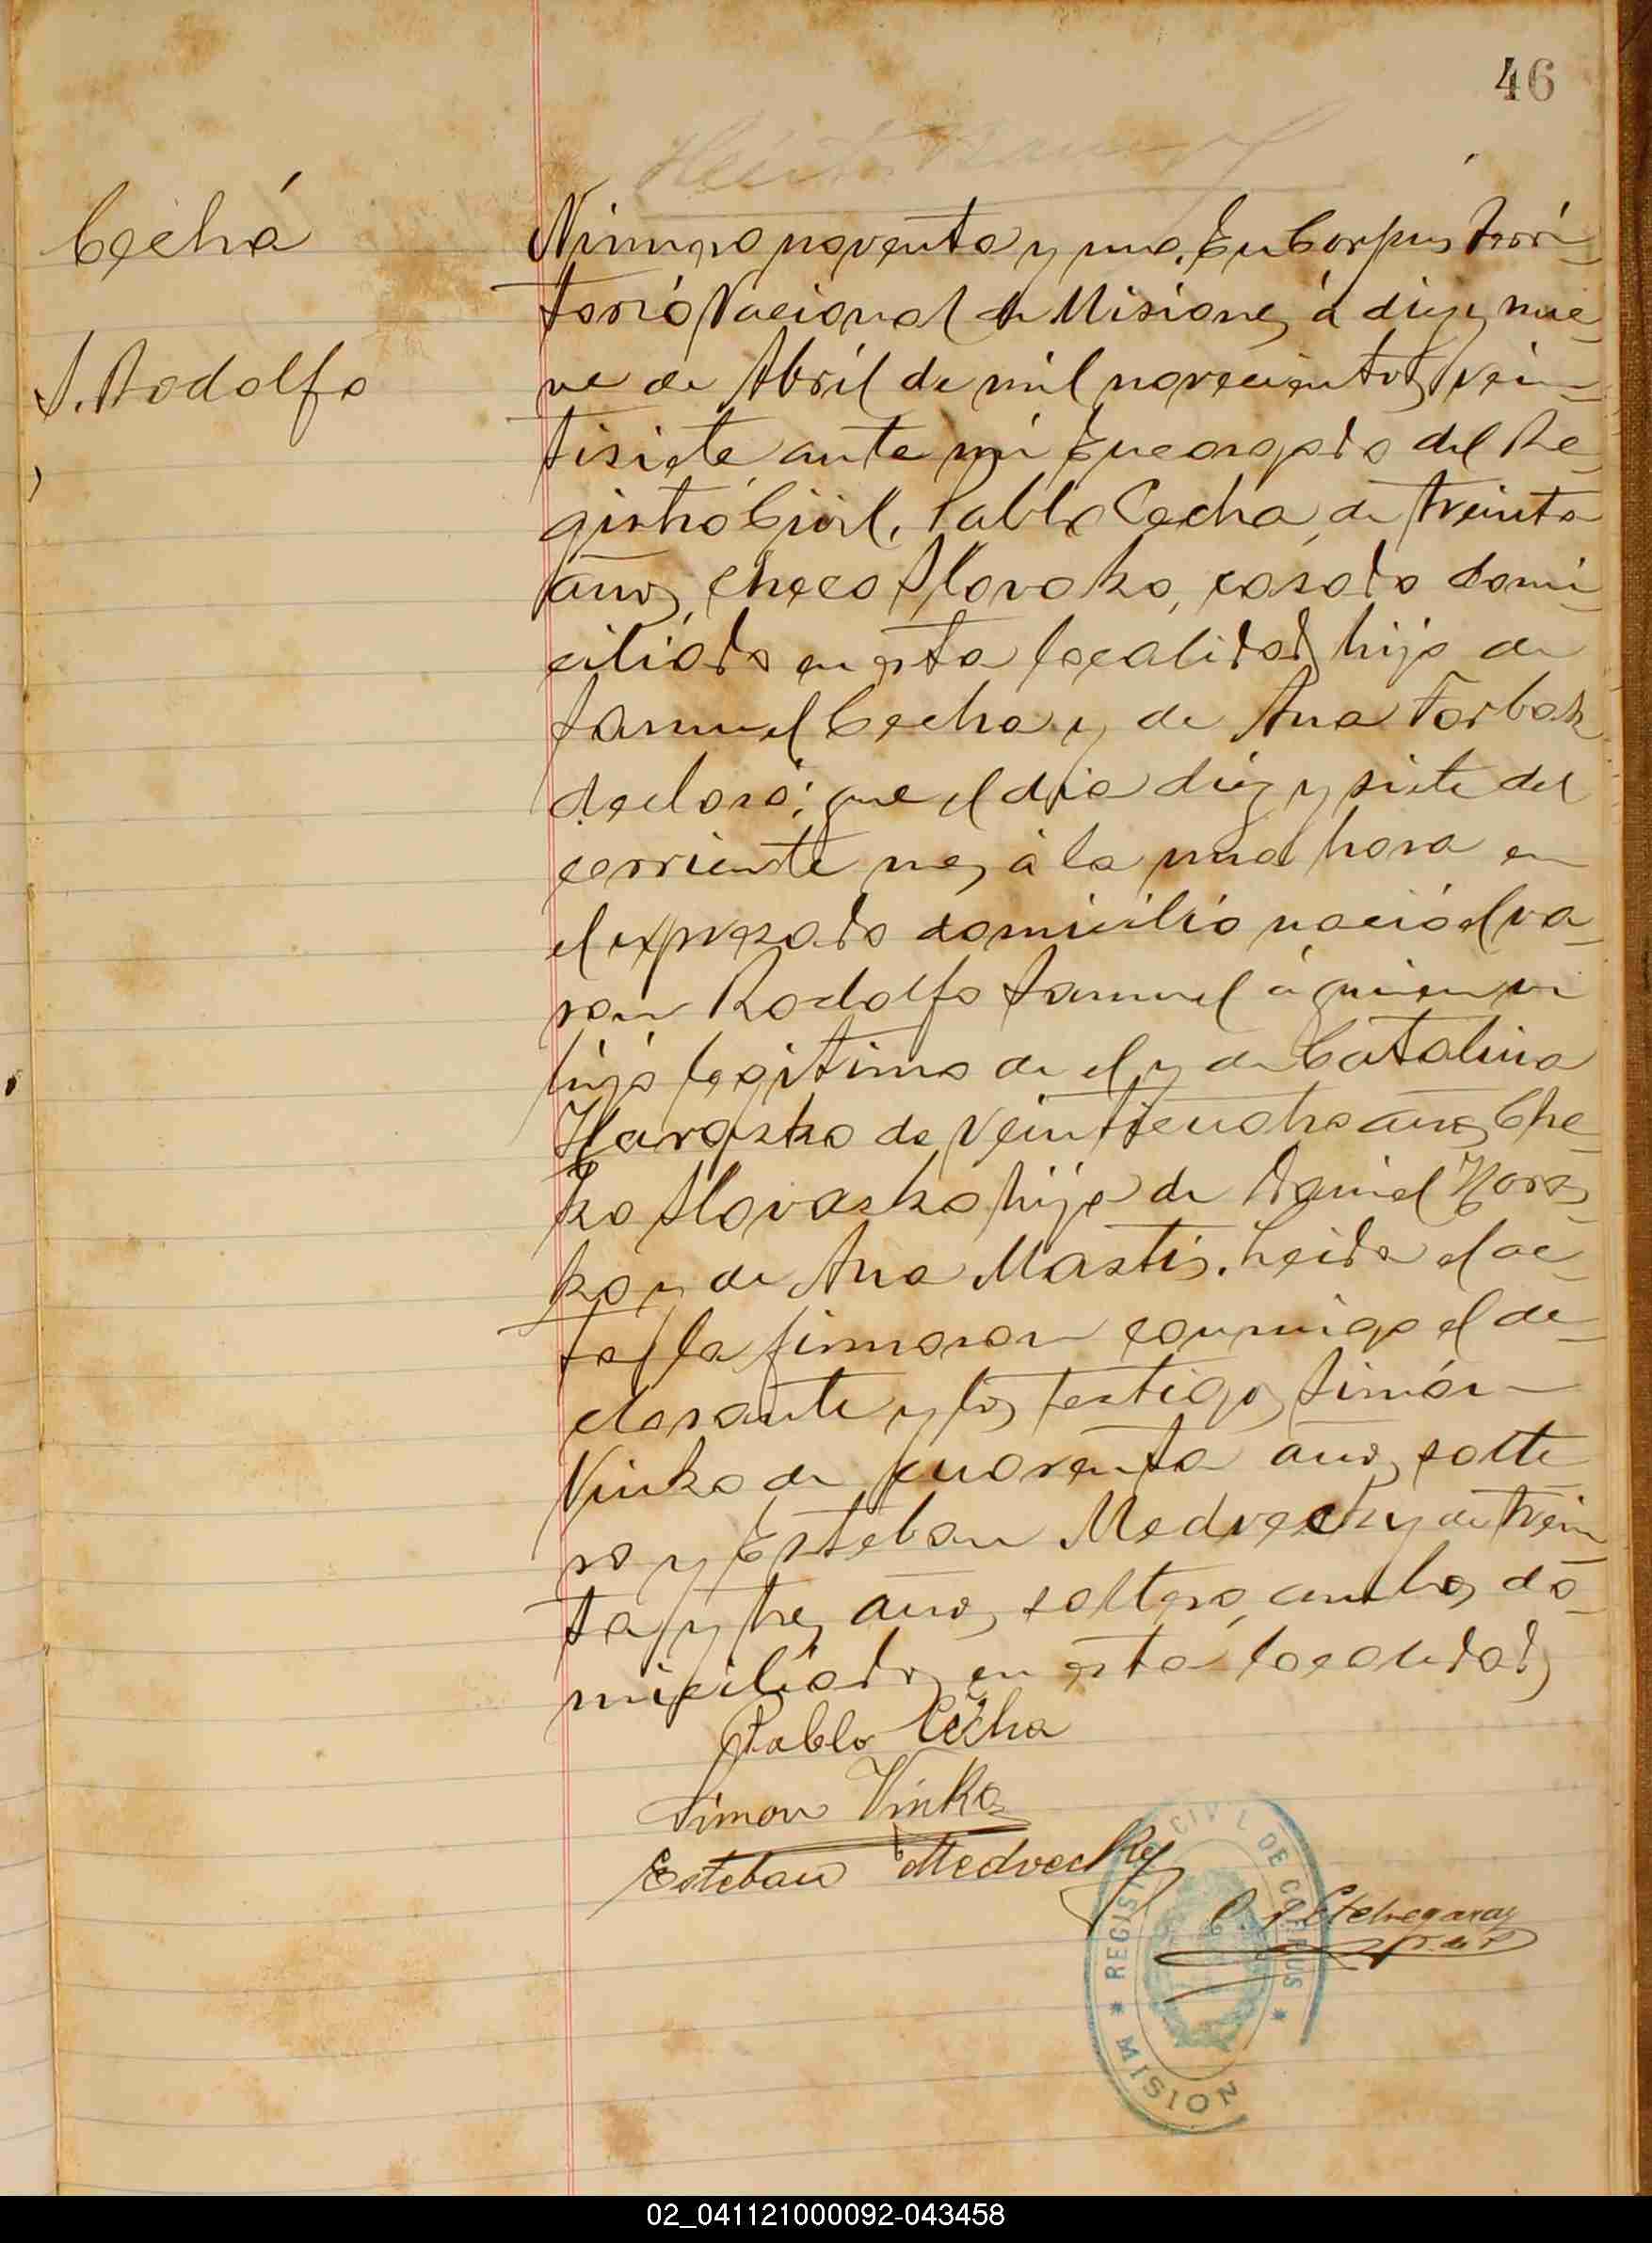 46
Cechá
S. Rodolfo
Número noventa y uno. En Corpus Terri-
torio Nacional de Misiones á diez y nue-
ve de Abril de mil novecientos vein-
tisiete ante mí Encargado del Re-
gistro Civil, Pablo Cecha, de treinta
años, checo Slovako, casado domi-
ciliado en esta localidad hijo de
Samuel Cecha y de Ana Farbak
declaró: que el dia diez y siete del
corriente mes á la una hora en
el expresado domicilio nació el va-
ron Rodolfo Samuel
hijo legitimo de el y de Catalina
Haraszko de veintiocho años Che-
ko Slovaska hija de Daniel Horas-
ko y de Ana Mastis. Leida el ac-
ta la firmaron conmigo el de-
clarante y los testigos Simón
Vinko de cuarenta años solte
ro y Esteban Medvecky de trein
ta y tres años, soltero, ambos do-
miciliados en esta localidad
Pablo Cecha
Simon Vinko
Esteban Medvecky
Etchegaray
J. de P.
REGISTRO CIVIL DE CORPUS
* MISION
02_041121000092-043458